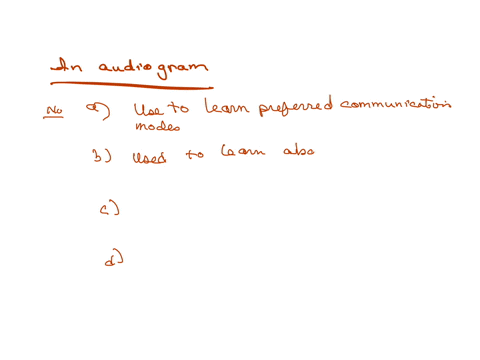 In audiogram
No a) Use to learn preferred communication
modes
b) used to learn abo
c)
d)